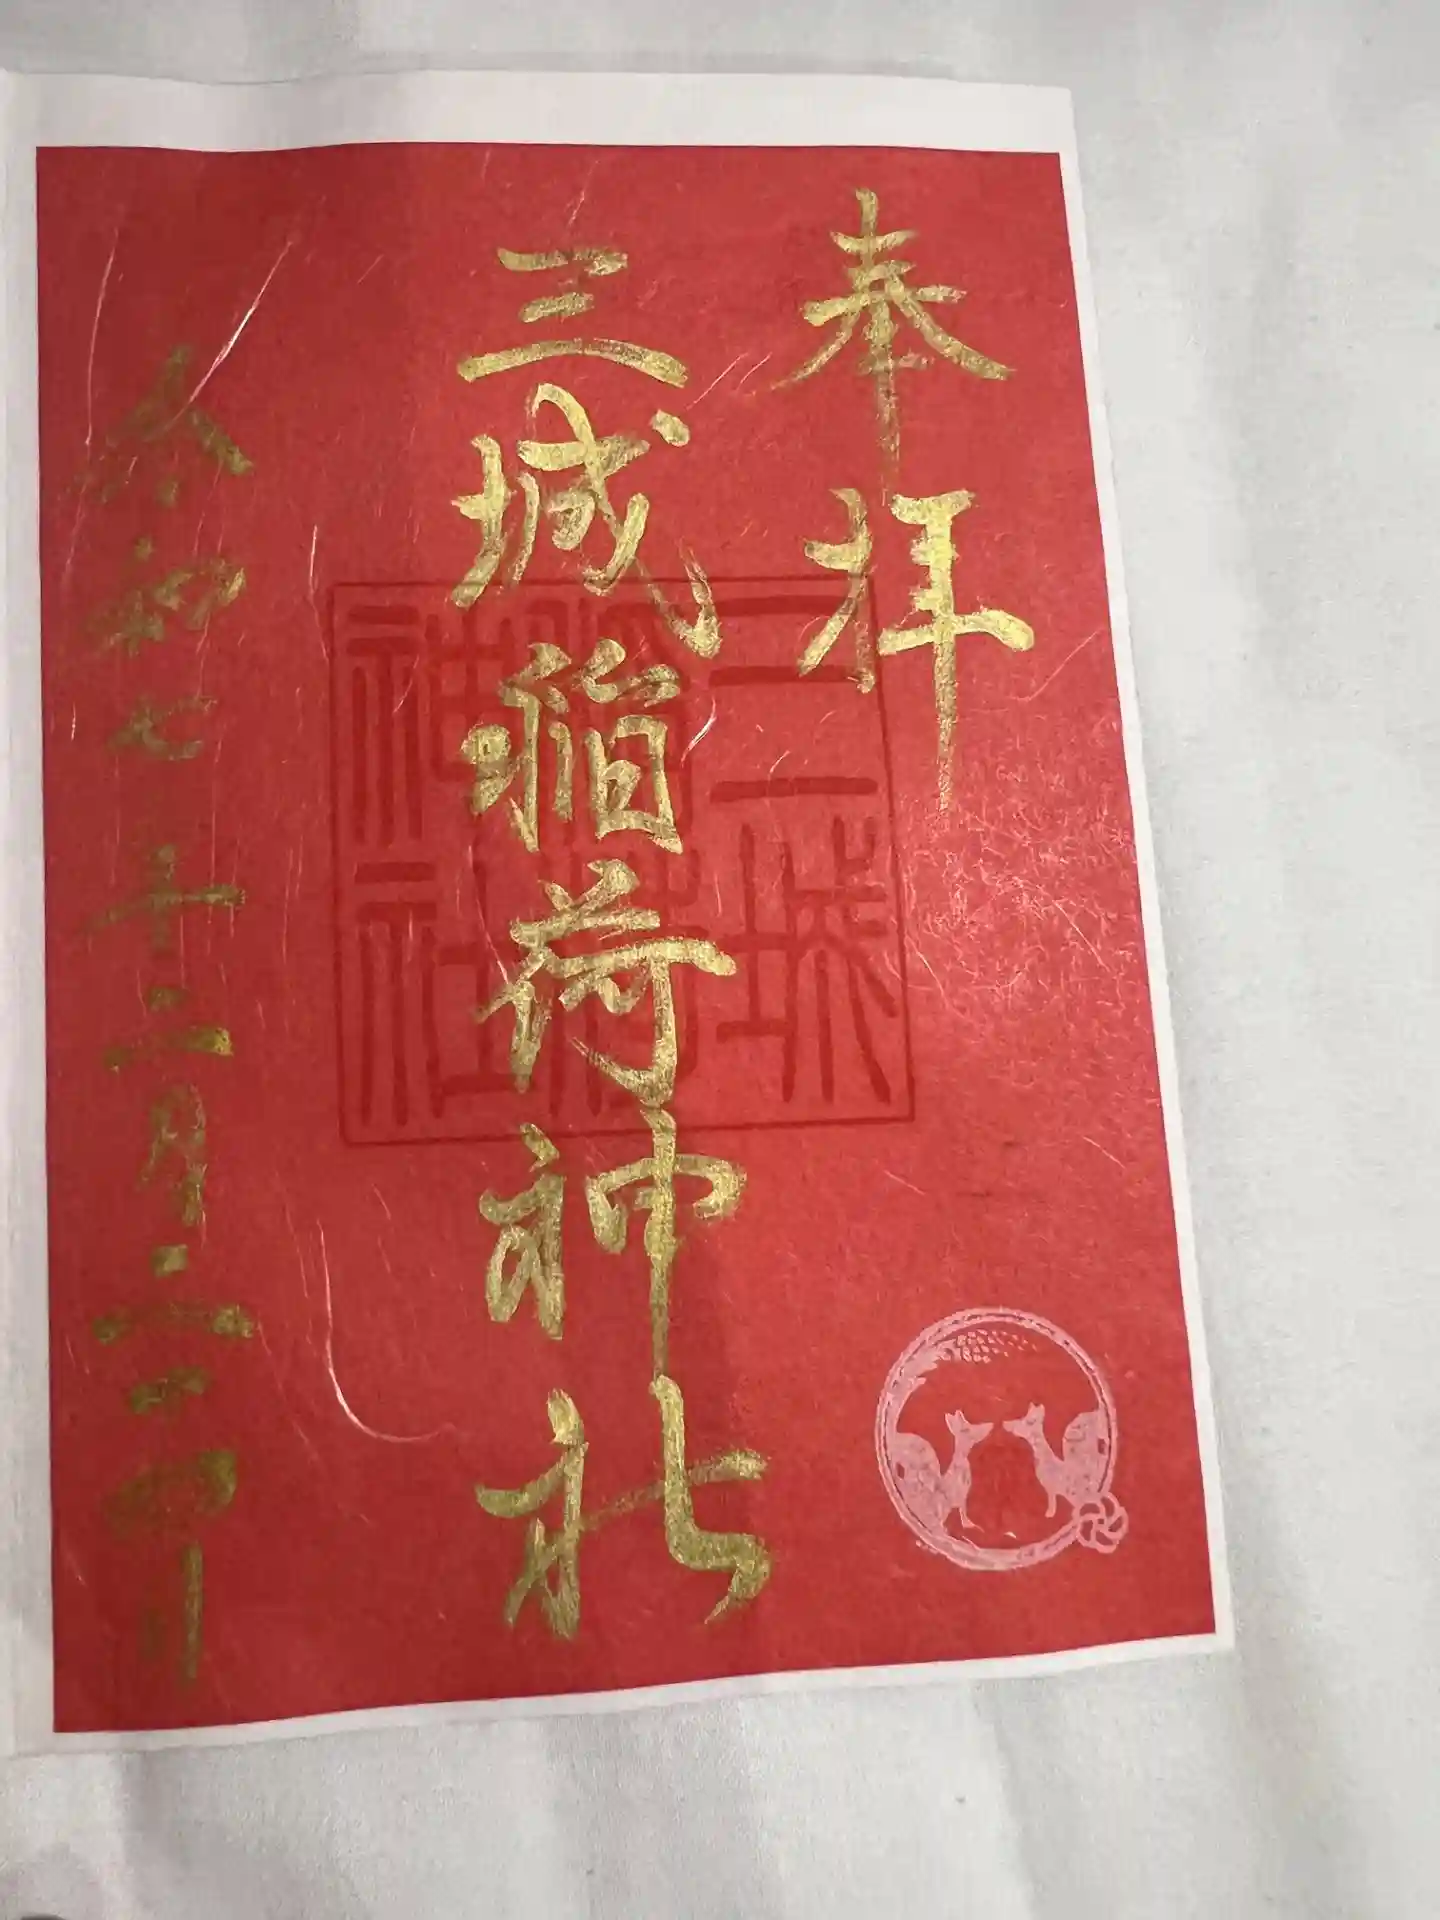 奉拝
三城稲荷神社
令和七年二月二十四日
三城稲荷神社